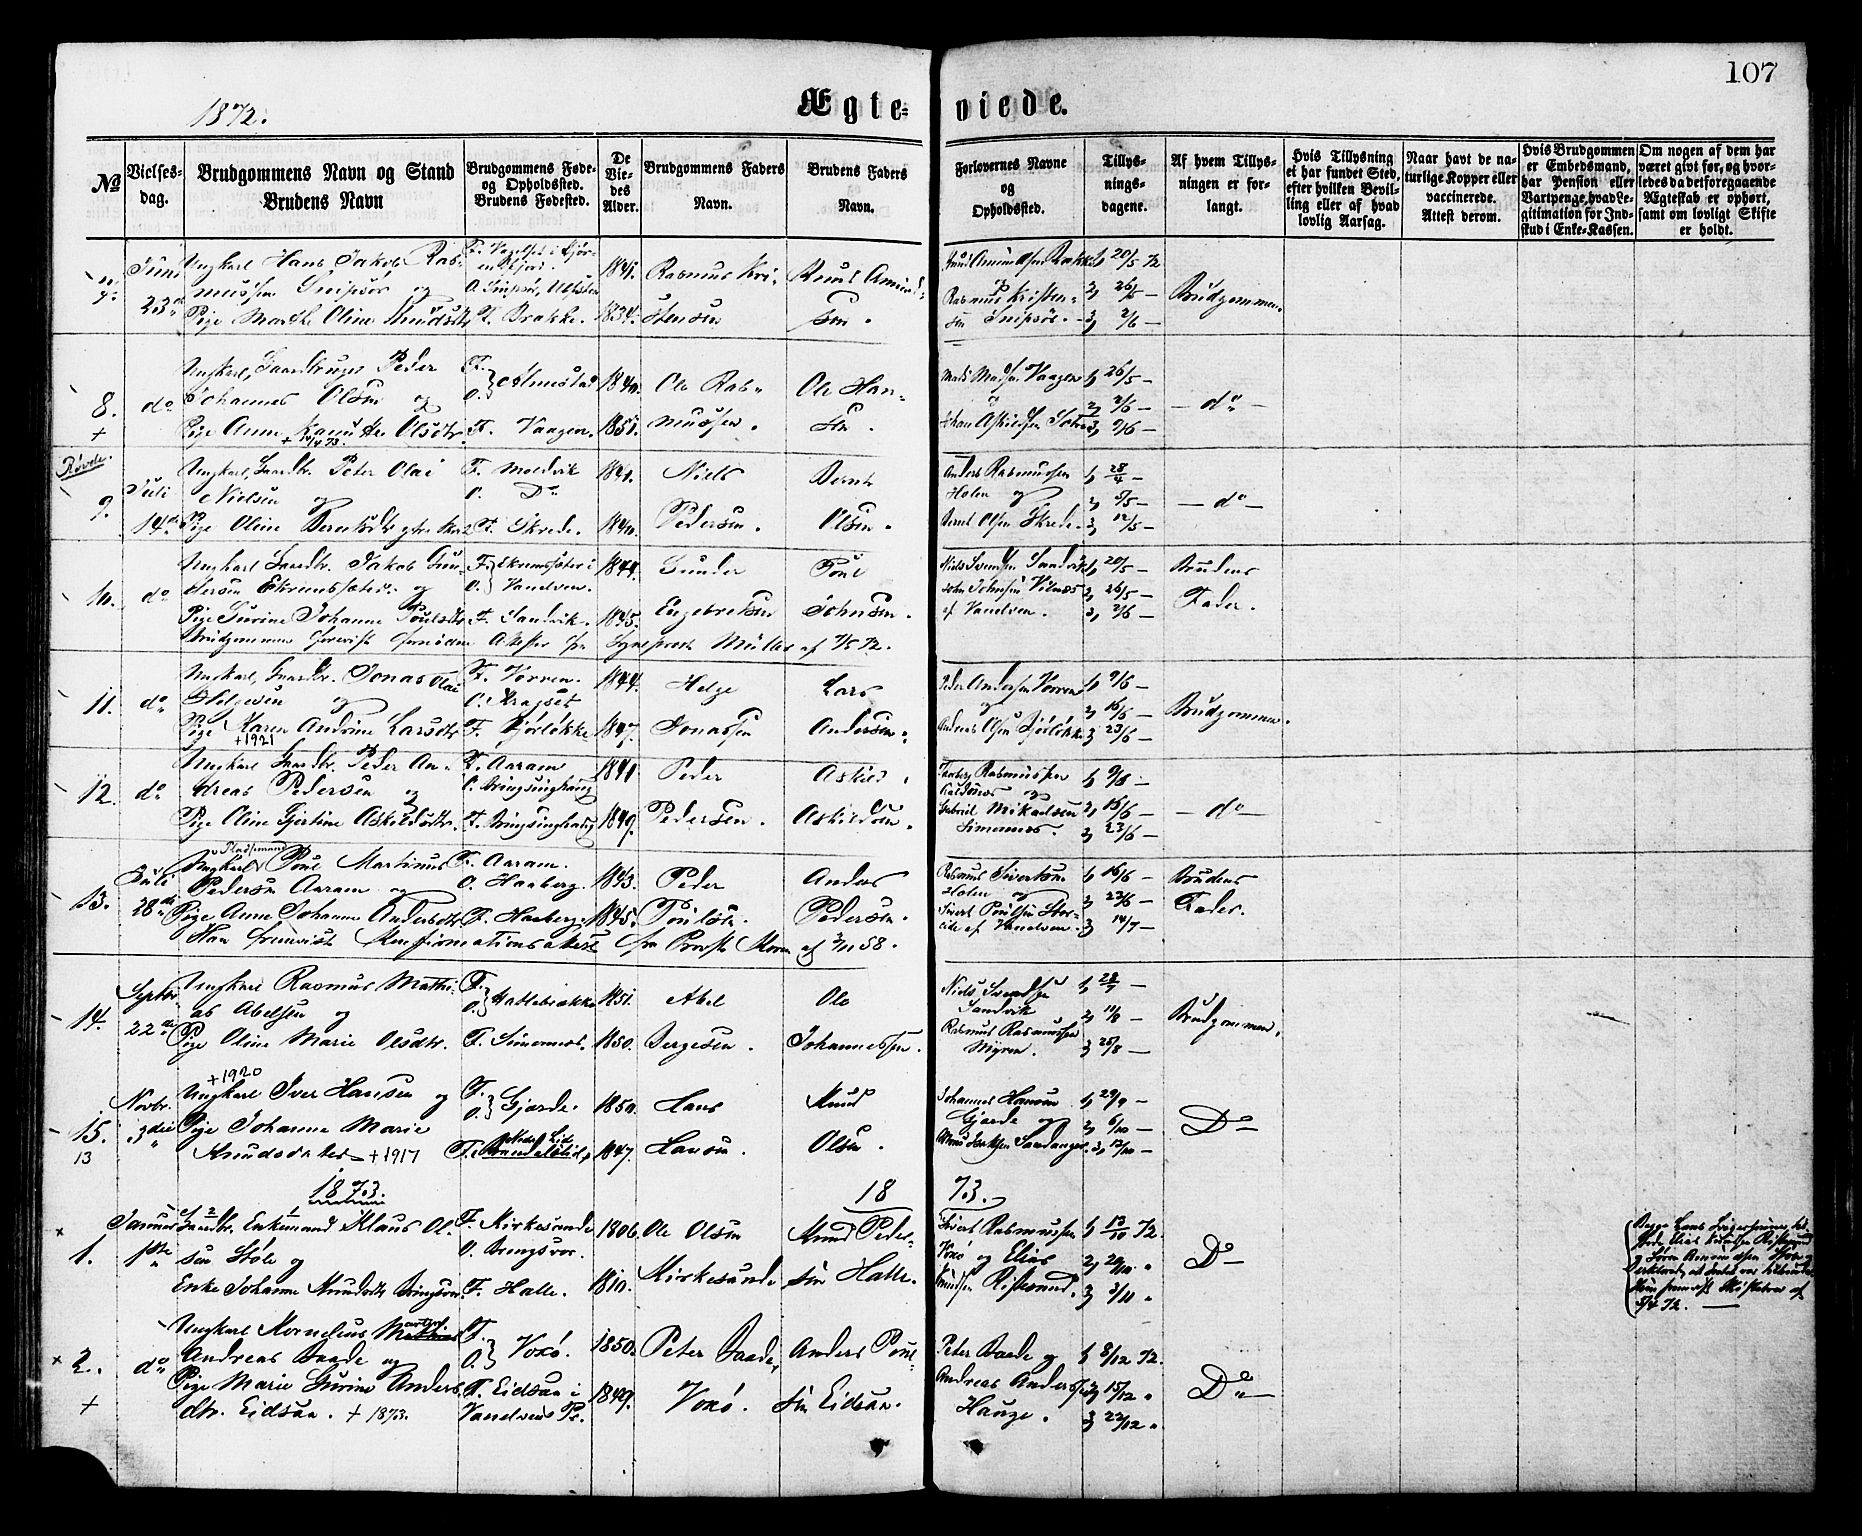 107
1872.
Ægte-viede.
No
Vielses-
dag.
Brudgommens Navn og Stand
Brudens Navn
Brudgommens Føde-
og Opholdssted.
Brudens Fødested.
De
Vie-
des
Alder.
Brudgommens Faders
Navn.
Brudens Faders
og
Navn.
Forlovernes Navne
og
Opholdssted.
Tillys-
nings-
dagene.
Af hvem Tillys-
ningen er for-
langt.
Hvis Tillysning
ei har fundet Sted,
efter hvilken Bevil-
ling eller af hvad
lovlig Aarsag.
Naar havt de na-
turlige Kopper eller
vaccinerede.
Attest derom.
Hvis Brudgommen
er Embedsmand,
har Pension eller
Vartpenge, hvad Le-
gitimation for Ind-
skud i Enke-Kassen.
Om nogen af dem har
været givt før, og hvor-
ledes da det foregaaende
Ægteskab er ophørt,
samt om lovligt Skifte
er holdt.
7.
Juni
23de
Ungkarl Hans Jakob Ras-
mussen Snipsør og
Pige Marthe Oline Knudsdtr
O. Snipsør,
F. Brække.
1841.
1834.
Rasmus Kri-
stensen
Knud Amund-
sen.
Rasmus Kristen-
sen Snipsør.
1, 20/5 72
2, 26/5 —
3, 2/6 —
Brudgommen.
8.
+
do
Ungkarl, Gaardbruger Peder
Johannes Olsen og
Pige Anne Olsdtr
+ 14/4 73.
F.
O. } Almestad
F. Vaagen.
1840.
1851.
Ole Ras-
mussen.
Ole Han-
sen.
Mads Vaagen
1, 26/5 —
2, 2/6 —
3, 9/6 —
— do —
Røvde.
9.
Juli
14de
Ungkarl, Gaardbr. Peter Olai
Nielsen og
Pige Oline Berntsdtr
F. Moldvik
O. Do
F. Skrede.
1841.
1840.
Niels
Pedersen.
Bernt
Olsen.
Anders Rasmussen
Holen og
Bernt Olsen Skrede.
1, 28/4 —
2, 5/5 —
3, 12/5 —
— do —
10.
do
Ungkarl Gaardbr. Jakob Gun-
dersen Ekremssæter og
Pige Gurine Johanne Poulsdtr
Brudgommen forevist Attester fra Sognepræst Müller af 7/5 72.
F. } Ekremssæter i
O. } Vanelven.
F. Sandvik.
1844.
1845.
Gunder
Engebretsen
Poul
Johnsen.
Niels Svendsen Sandvik
John Johnsen
af Vanelven.
1, 20/5 —
2, 26/5 —
3, 2/6 —
Brudens
Fader.
11.
do
Ungkarl, Gaardbr. Jonas Olai
Helgesen og
Pige Karen Andrine Larsdtr
+ 1921
F. Vorren.
O. Kragset
F. Bjørløkke
1844.
1847.
Helge
Jonassen
Lars
Andersen.
Peder Andersen Vorren
og
Andreas Olsen Bjørløkke
1, 9/6 —
2, 16/6 —
3 23/6 —
Brudgommen.
12.
do
Ungkarl Gaardbr. Peder An-
dreas Pedersen og
Pige Oline Gjertine Askildsdtr.
F. Aaram
O. Bringsinghaug
F. Bringsinghaug
1841
1849.
Peder
Pedersen.
Askild
Askildsen.
Rasmussen
og
Gabriel Mikaelsen
Simonnes.
1, 9/6 —
2, 16/6 —
3, 23/6 —
— do —
13.
Juli
28de
Pladsmand
Ungkarl Poul Martinus
Pedersen Aaram og
Pige Anne Johanne Andersdtr
Han fremviste Konfirmationsattest fra Provst af 2/11 58.
F. Aaram.
O. Haaberg.
F. Haaberg.
1843.
1845.
Peder
Poulsen.
Anders
Pedersen.
Rasmus Sivertsen
Holen og
Sivert Poulsen Stor-
eide af Vanelven.
1, 16/6 —
2, 23/6 —
3 14/7 —
Brudens
Fader.
14.
Septbr
22de
Ungkarl Rasmus Mathi-
as Abelsen og
Pige Oline Marie Olsdtr.
F.
O. } Hattebrække
F. Simonnes.
1851.
1850.
Abel
Bergesen.
Ole
Johannessen.
Niels Svendsen
Sandvik
Rasmus Rasmussen
Myren.
1, 28/7 —
2, 11/8 —
3 25/8 —
Brudgommen.
15.
13
Novbr.
3die
+ 1920
Ungkarl Iver Hansen og
Pige Johanne Marie
Knudsdatter + 1917
F.
O. } Gjærde.
1850.
1847.
Hans
Hansen.
Knud
Olsen.
Johannes Hansen
Gjærde og
1, 29/9 —
2, 6/10 —
3, 13/10 —
Do
1873.
18 73.
1.
Januar
1ste
Gaardbr. Enkemand Klaus Ol-
sen Støle og
Enke Johanne Knudsdtr Bringsvor
F. Kirkesunde
O. Bringsvor.
F. Halle.
1806.
1810.
Ole Olsen
Kirkesunde
Knud Peder-
sen Halle.
Sivert Rasmussen
Voxø og Elias
Knudsen Ristesund.
1, 13/10 72.
2, 20/10 "
3 3/11 "
Do
2.
+
do
Ungkarl Kornelius
Andreas Baade og
Pige Marie Gurine Anders
dtr. Eidsaa. + 1873.
F.
O. } Voxø.
F. Eidsaa i
Vanelvens Pr.
1850.
1849.
Peter Baade,
Voxø.
Anders Poul-
sen Eidsaa.
Peter Baade og
Andreas Andersen
Hauge.
1, 8/12 72.
2, 15/12 "
3 22/12 "
Do